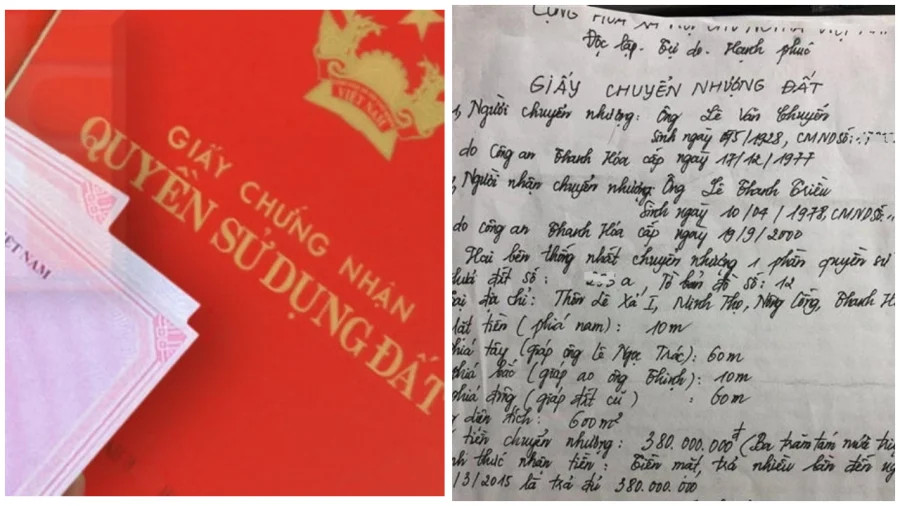 VIỆT NAM
GIẤY CHỨNG NHẬN
QUYỀN SỬ DỤNG ĐẤT
VIỆT NAM
CỘNG HÒA XÃ HỘI CHỦ NGHĨA VIỆT
Độc lập - Tự do - Hạnh phúc
GIẤY CHUYỂN NHƯỢNG ĐẤT
1, Người chuyển nhượng: Ông Lê Văn Chuyến
Sinh ngày /5/1928, CMND số:
do Công an Thanh Hóa cấp ngày 17/12/1977
, Người nhận chuyển nhượng: Ông Lê Thanh Triều
Sinh ngày 10/04/1978, CMND số:
do công an Thanh Hóa cấp ngày 19/9/2000
Hai bên thống nhất chuyển nhượng 1 phần quyền sử
đất số: a, Tờ bản đồ số: 12
địa chỉ: Thôn Lê Xá I, Minh Thọ, Nông Cống, Thanh H
tiền (phía nam): 10m
hía tây (giáp ông Lê Ngọc Trác): 60m
phía bắc (giáp ao ông Thịnh): 10m
phía đông (giáp đất cũ) : 60m
diện tích: 600m²
tiền chuyển nhượng: 380.000.000đ (Ba trăm tám mươi triệ
thức nhận tiền: Tiền mặt, trả nhiều lần đến ng
/3/2015 là trả đủ 380.000.000